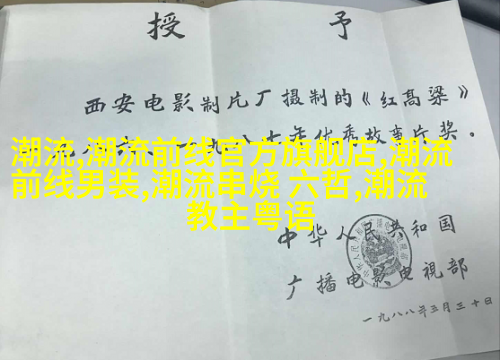 授 予
西安电影制片厂摄制的《红高粱》
一九八七年优秀故事片奖。
潮流,潮流前线官方旗舰店,潮流
前线男装,潮流串烧 六哲,潮流
教主粤语
中华人民共和国
广播电影电视部
一九八八年三月三十日